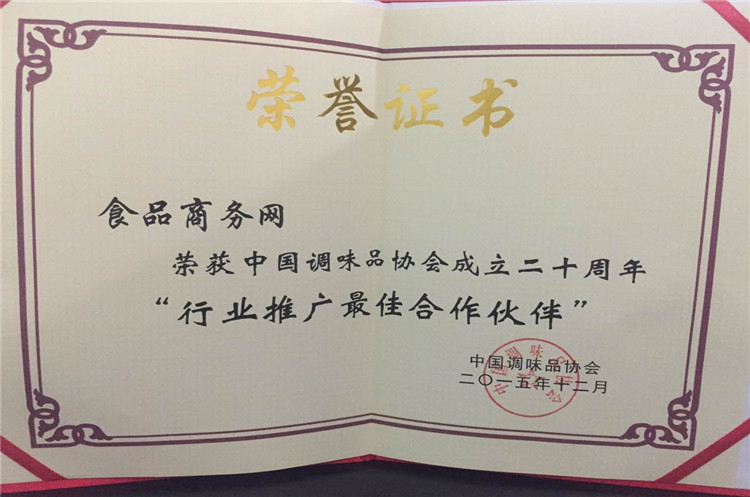 荣誉证书
食品商务网
荣获中国调味品协会成立二十周年
“行业推广最佳合作伙伴”
中国调味品协会
二〇一五年十二月